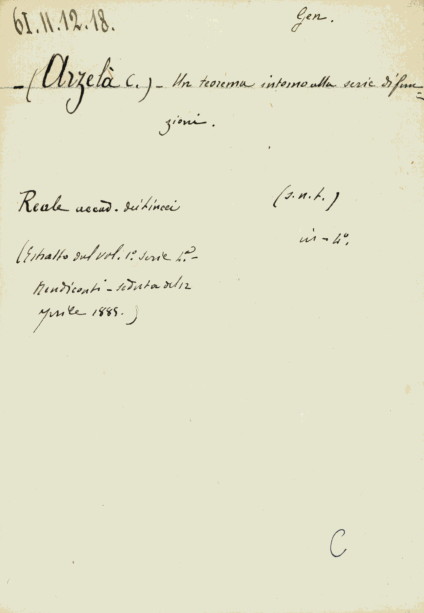 61.11.12.18.
Gen.
- (Arzelà C.) - Un teorema intorno alla serie di fun=
zioni.
Reale accad. dei Lincei
(s.n.t.)
in-4°.
(Estratto dal vol. 1° serie 4ª -
Rendiconti - seduta del 12
Aprile 1885.)
C